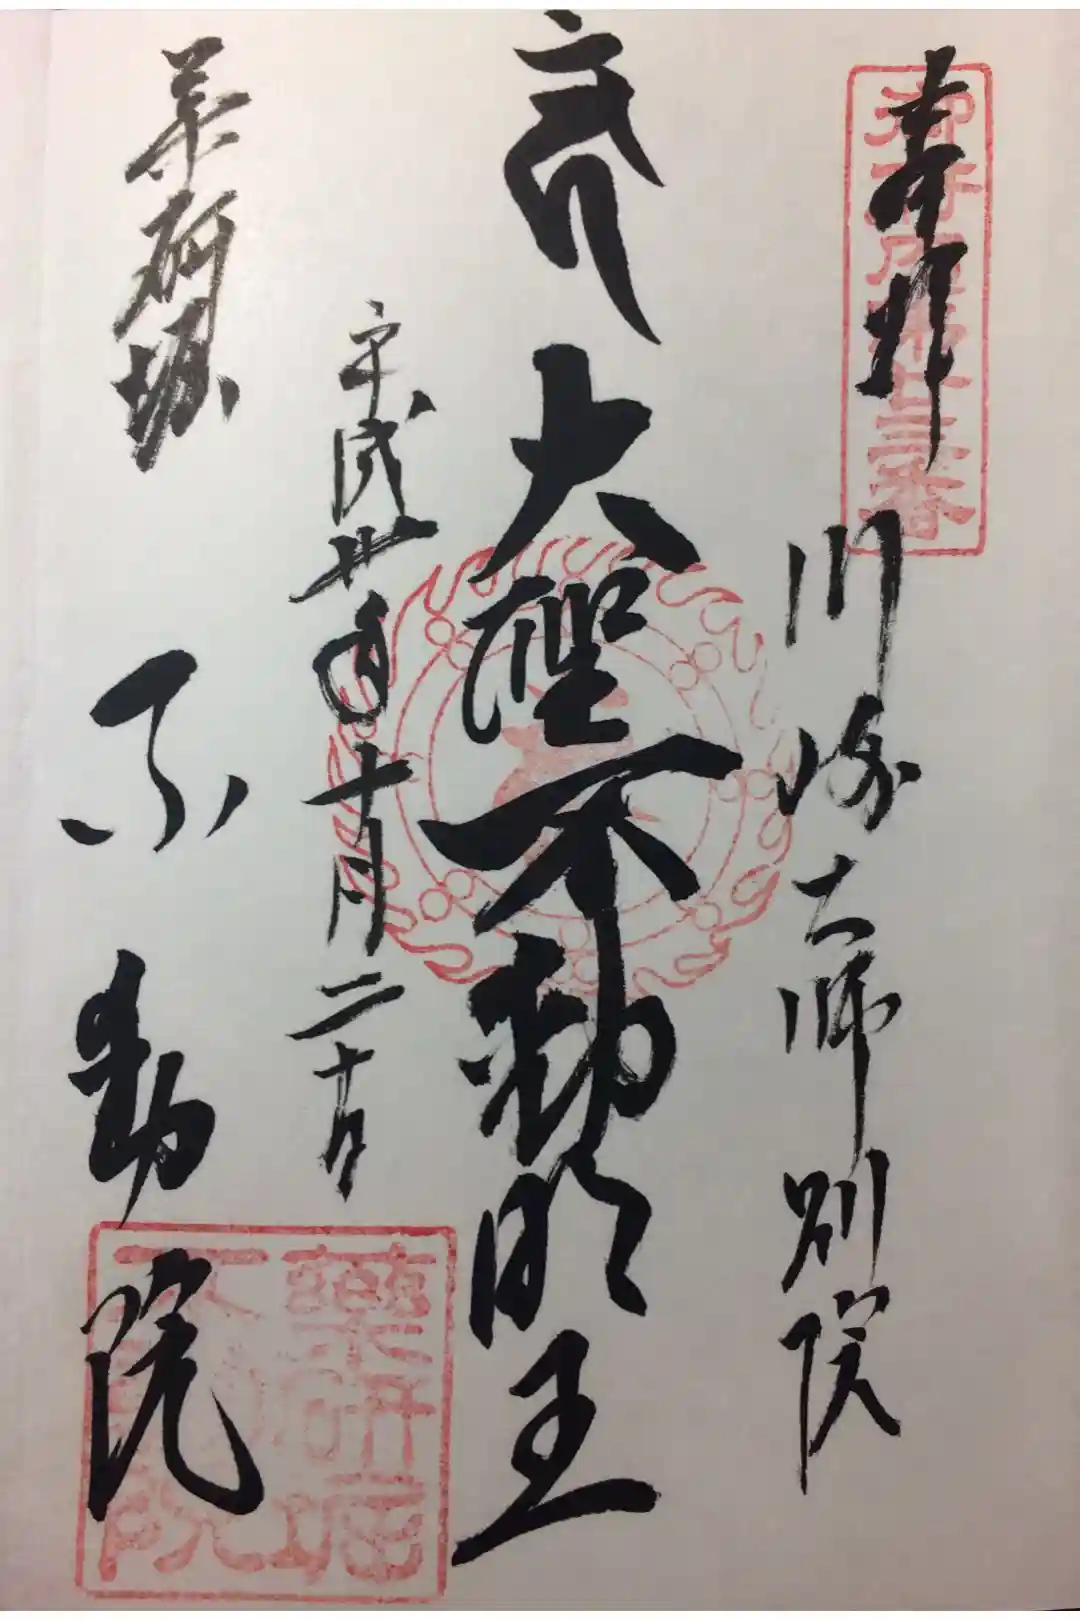 奉拝
御府内第廿三番
川崎大師別院
大聖不動明王
平成卅年十月二十日
薬研堀
不動院
薬研堀
不動院